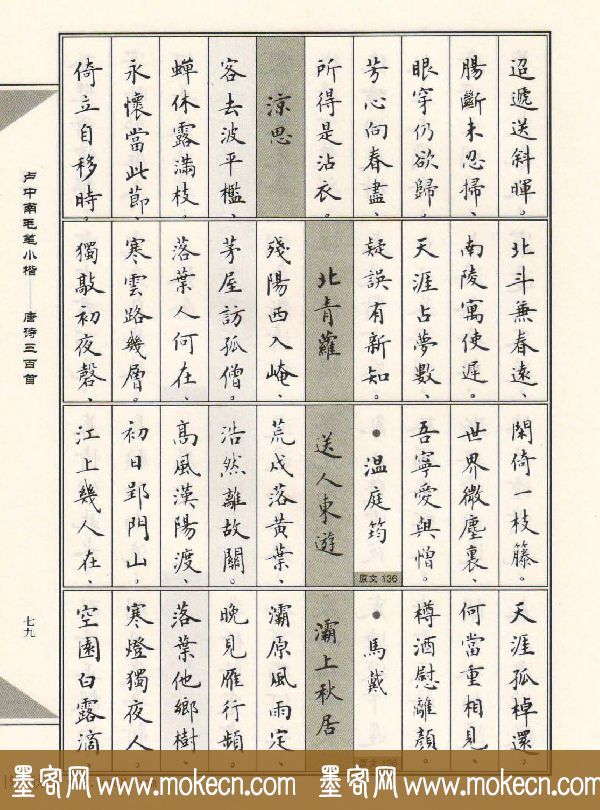 迢遞送斜暉。
腸斷未忍掃、
眼穿仍欲歸。
芳心向春盡、
所得是沾衣。
涼思
客去波平檻、
蟬休露滿枝。
永懷當此節、
倚立自移時。
北斗兼春遠、
南陵寓使遲。
天涯占夢數、
疑誤有新知。
北青蘿
殘陽西入崦、
茅屋訪孤僧。
落葉人何在、
寒雲路幾層。
獨敲初夜磬、
閑倚一枝藤。
世界微塵裏、
吾寧愛與憎。
•温庭筠
原文 136
送人東遊
荒戍落黃葉、
浩然離故關。
高風漢陽渡、
初日郢門山。
江上幾人在、
天涯孤棹還。
何當重相見、
樽酒慰離顏。
•馬戴
原文 136
灞上秋居
灞原風雨定、
晚見雁行頻。
落葉他鄉樹、
寒燈獨夜人。
空園白露滴、
卢中南毛笔小楷——唐诗三百首
七九
墨客网 www.mokecn.com 墨客网 www.mokecn.com